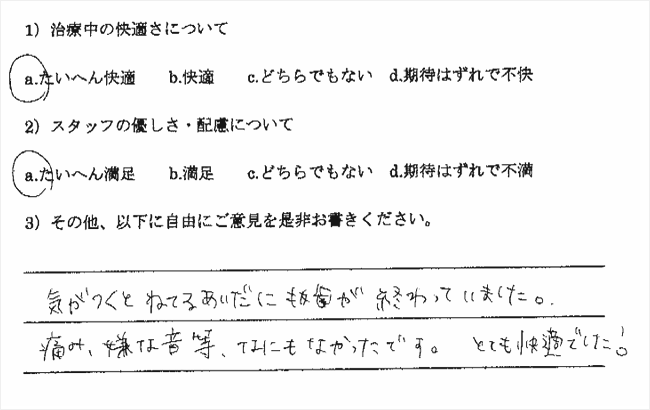 1）治療中の快適さについて
a.たいへん快適　b.快適　c.どちらでもない　d.期待はずれで不快
2）スタッフの優しさ・配慮について
a.たいへん満足　b.満足　c.どちらでもない　d.期待はずれで不満
3）その他、以下に自由にご意見を是非お書きください。
気がつくと ねてるあいだに抜歯が 終わっていました。
痛み、嫌な音等、なにもなかったです。 とても快適でした！